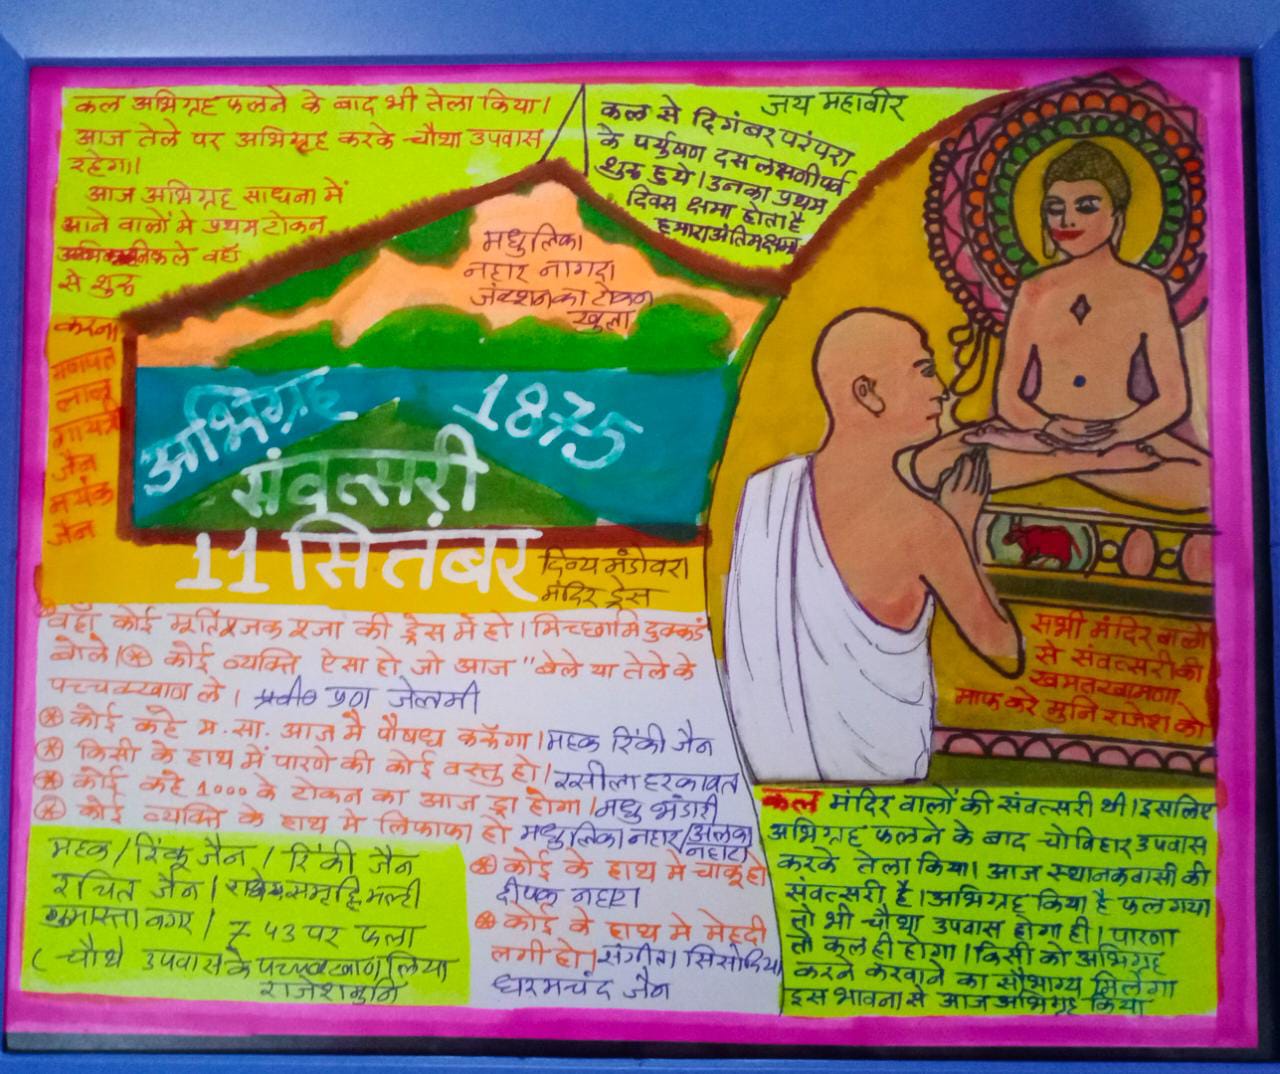 कल अभिग्रह फलने के बाद भी तेला किया।
आज तेले पर अभिग्रह करके चौथा उपवास
रहेगा।
आज अभिग्रह साधना में
आने वालों में प्रथम टोकन
निकले वहाँ
से शुरु
करना
गणपत
लालू
गायत्री
जैन
मयंक
जैन
जय महावीर
कल से दिगंबर परंपरा
के पर्युषण दस लक्षणी पर्व
शुरु हुये। उनका प्रथम
दिवस क्षमा होता है
हमारा अंतिम क्षमा
मधुलिका
नहार नागदा
जंक्शन का टोकन
खुला
अभिग्रह 1875
संवत्सरी
11 सितंबर
दिव्य मंडोवरा
मंदिर ड्रेस
वहाँ कोई मूर्तिपूजक पूजा की ड्रेस में हो। मिच्छामि दुक्कडं
बोले। कोई व्यक्ति ऐसा हो जो आज "बेले या तेले के
पच्चक्खाण ले। जेलमी
कोई कहे म.सा. आज मै पौषध करूँगा। महक रिंकी जैन
किसी के हाथ में पारणे की कोई वस्तु हो। रसीला हरकावत
कोई कहे 1000 के टोकन का आज ड्रा होगा। मधु भंडारी
कोई व्यक्ति के हाथ मे लिफाफा हो मधुलिका नहार/अलका
नहाटा
कोई के हाथ मे चाकू हो
दीपक नहारा
कोई के हाथ मे मेहदी
लगी हो। संगीता सिसोदिया
धरमचंद जैन
महक/रिंकू जैन/रिंकी जैन
रचित जैन।
गुमास्ता नगर/ 7 43 पर फला
(चौथे उपवास के पच्चक्खाण लिया
राजेश मुनि
सभी मंदिर वालो
से संवत्सरी की
खमत खामणा
माफ करे मुनि राजेश को
कल मंदिर वालों की संवत्सरी थी। इसलिए
अभिग्रह फलने के बाद चोविहार उपवास
करके तेला किया। आज स्थानकवासी की
संवत्सरी है। अभिग्रह किया है फल गया
तो भी चौथा उपवास होगा ही। पारणा
तो कल ही होगा। किसी को अभिग्रह
करने करवाने का सौभाग्य मिलेगा
इस भावना से आज अभिग्रह किया